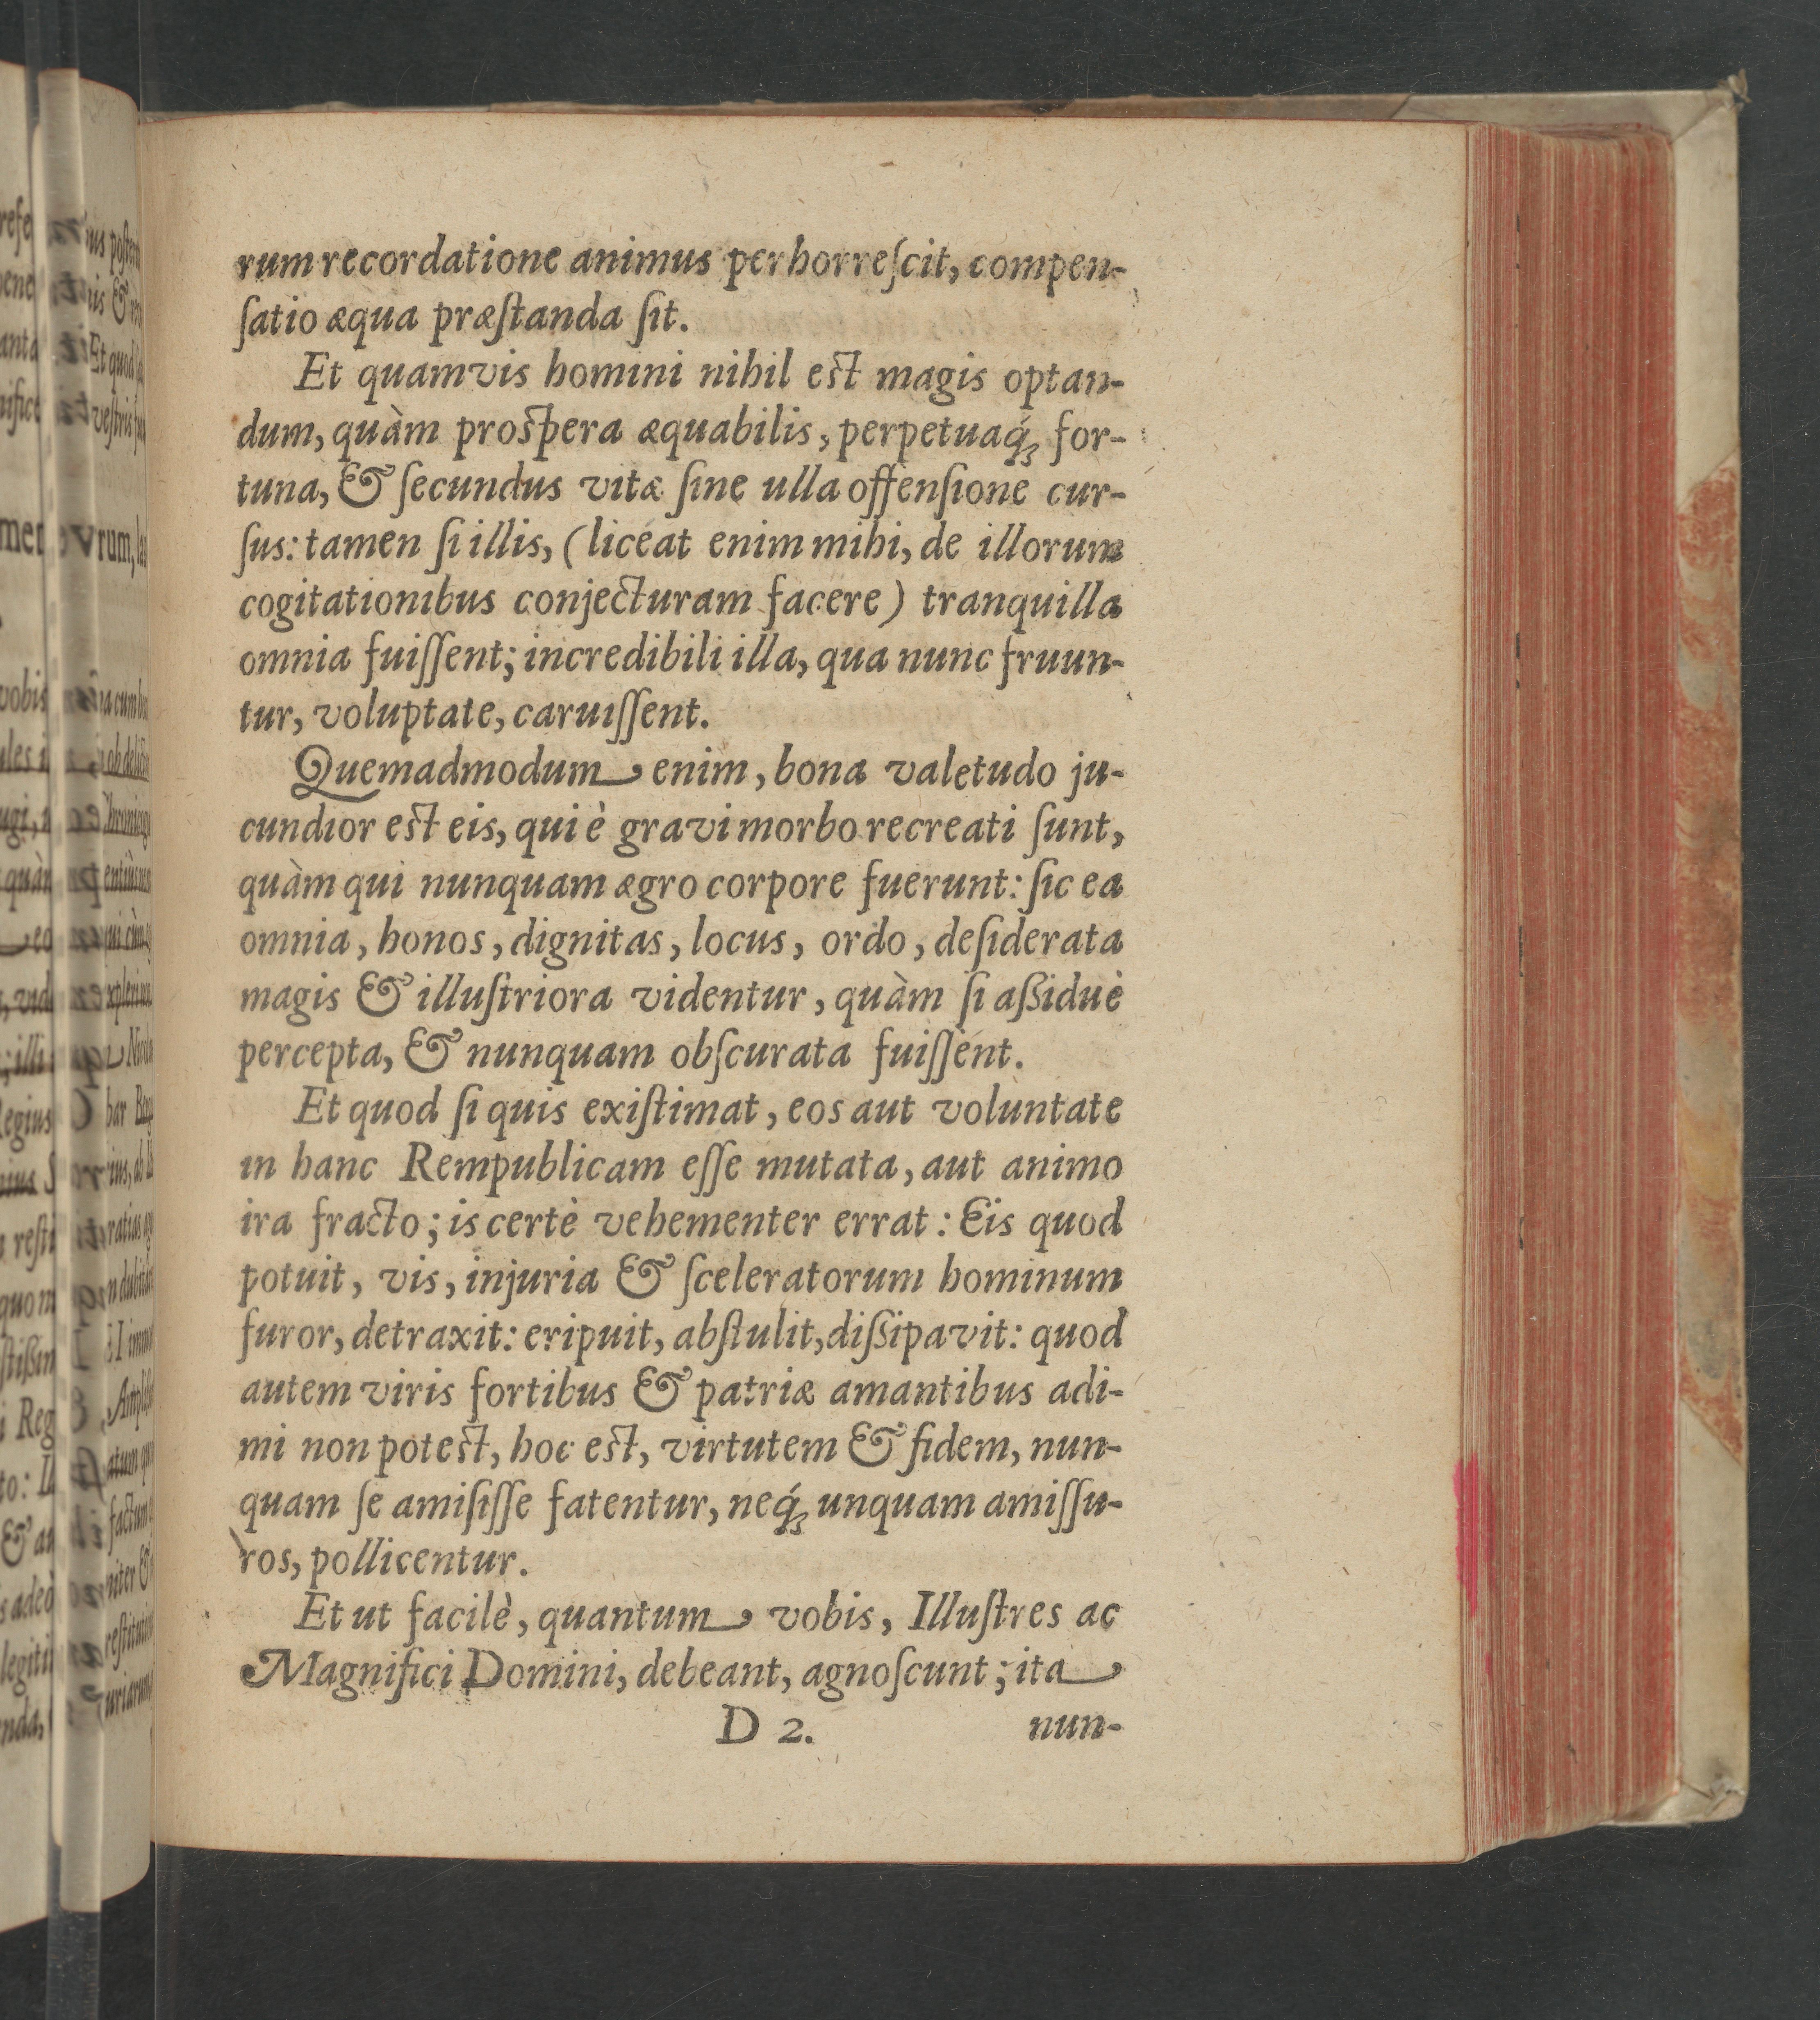 rum recordatione animus perhorreſcit, compen-
ſatio æqua præſtanda ſit.
Et quamvis homini nihil eſt magis optan-
dum, quàm proſpera æquabilis, perpetuaq́ꝫ for-
tuna, & ſecundus vitæ ſine ulla offenſione cur-
ſus: tamen ſi illis, (liceat enim mihi, de illorum
cogitationibus conjecturam facere) tranquilla
omnia fuiſſent; incredibili illa, qua nunc fruun-
tur, voluptate, caruiſſent.
Quemadmodum enim, bona valetudo ju-
cundior eſt eis, qui è gravi morbo recreati ſunt,
quàm qui nunquam ægro corpore fuerunt: ſic ea
omnia, honos, dignitas, locus, ordo, deſiderata
magis & illuſtriora videntur, quàm ſi aßiduè
percepta, & nunquam obſcurata fuiſſent.
Et quod ſi quis exiſtimat, eos aut voluntate
in hanc Rempublicam eſſe mutata, aut animo
ira fracto; is certè vehementer errat: Eis quod
potuit, vis, injuria & ſceleratorum hominum
furor, detraxit: eripuit, abſtulit, dißipavit: quod
autem viris fortibus & patriæ amantibus adi-
mi non poteſt, hoc eſt, virtutem & fidem, nun-
quam ſe amiſiſſe fatentur, neq́ꝫ unquam amiſſu-
ros, pollicentur.
Et ut facilè, quantum vobis, Illuſtres ac
Magnifici Domini, debeant, agnoſcunt; ita
D 2. nun-